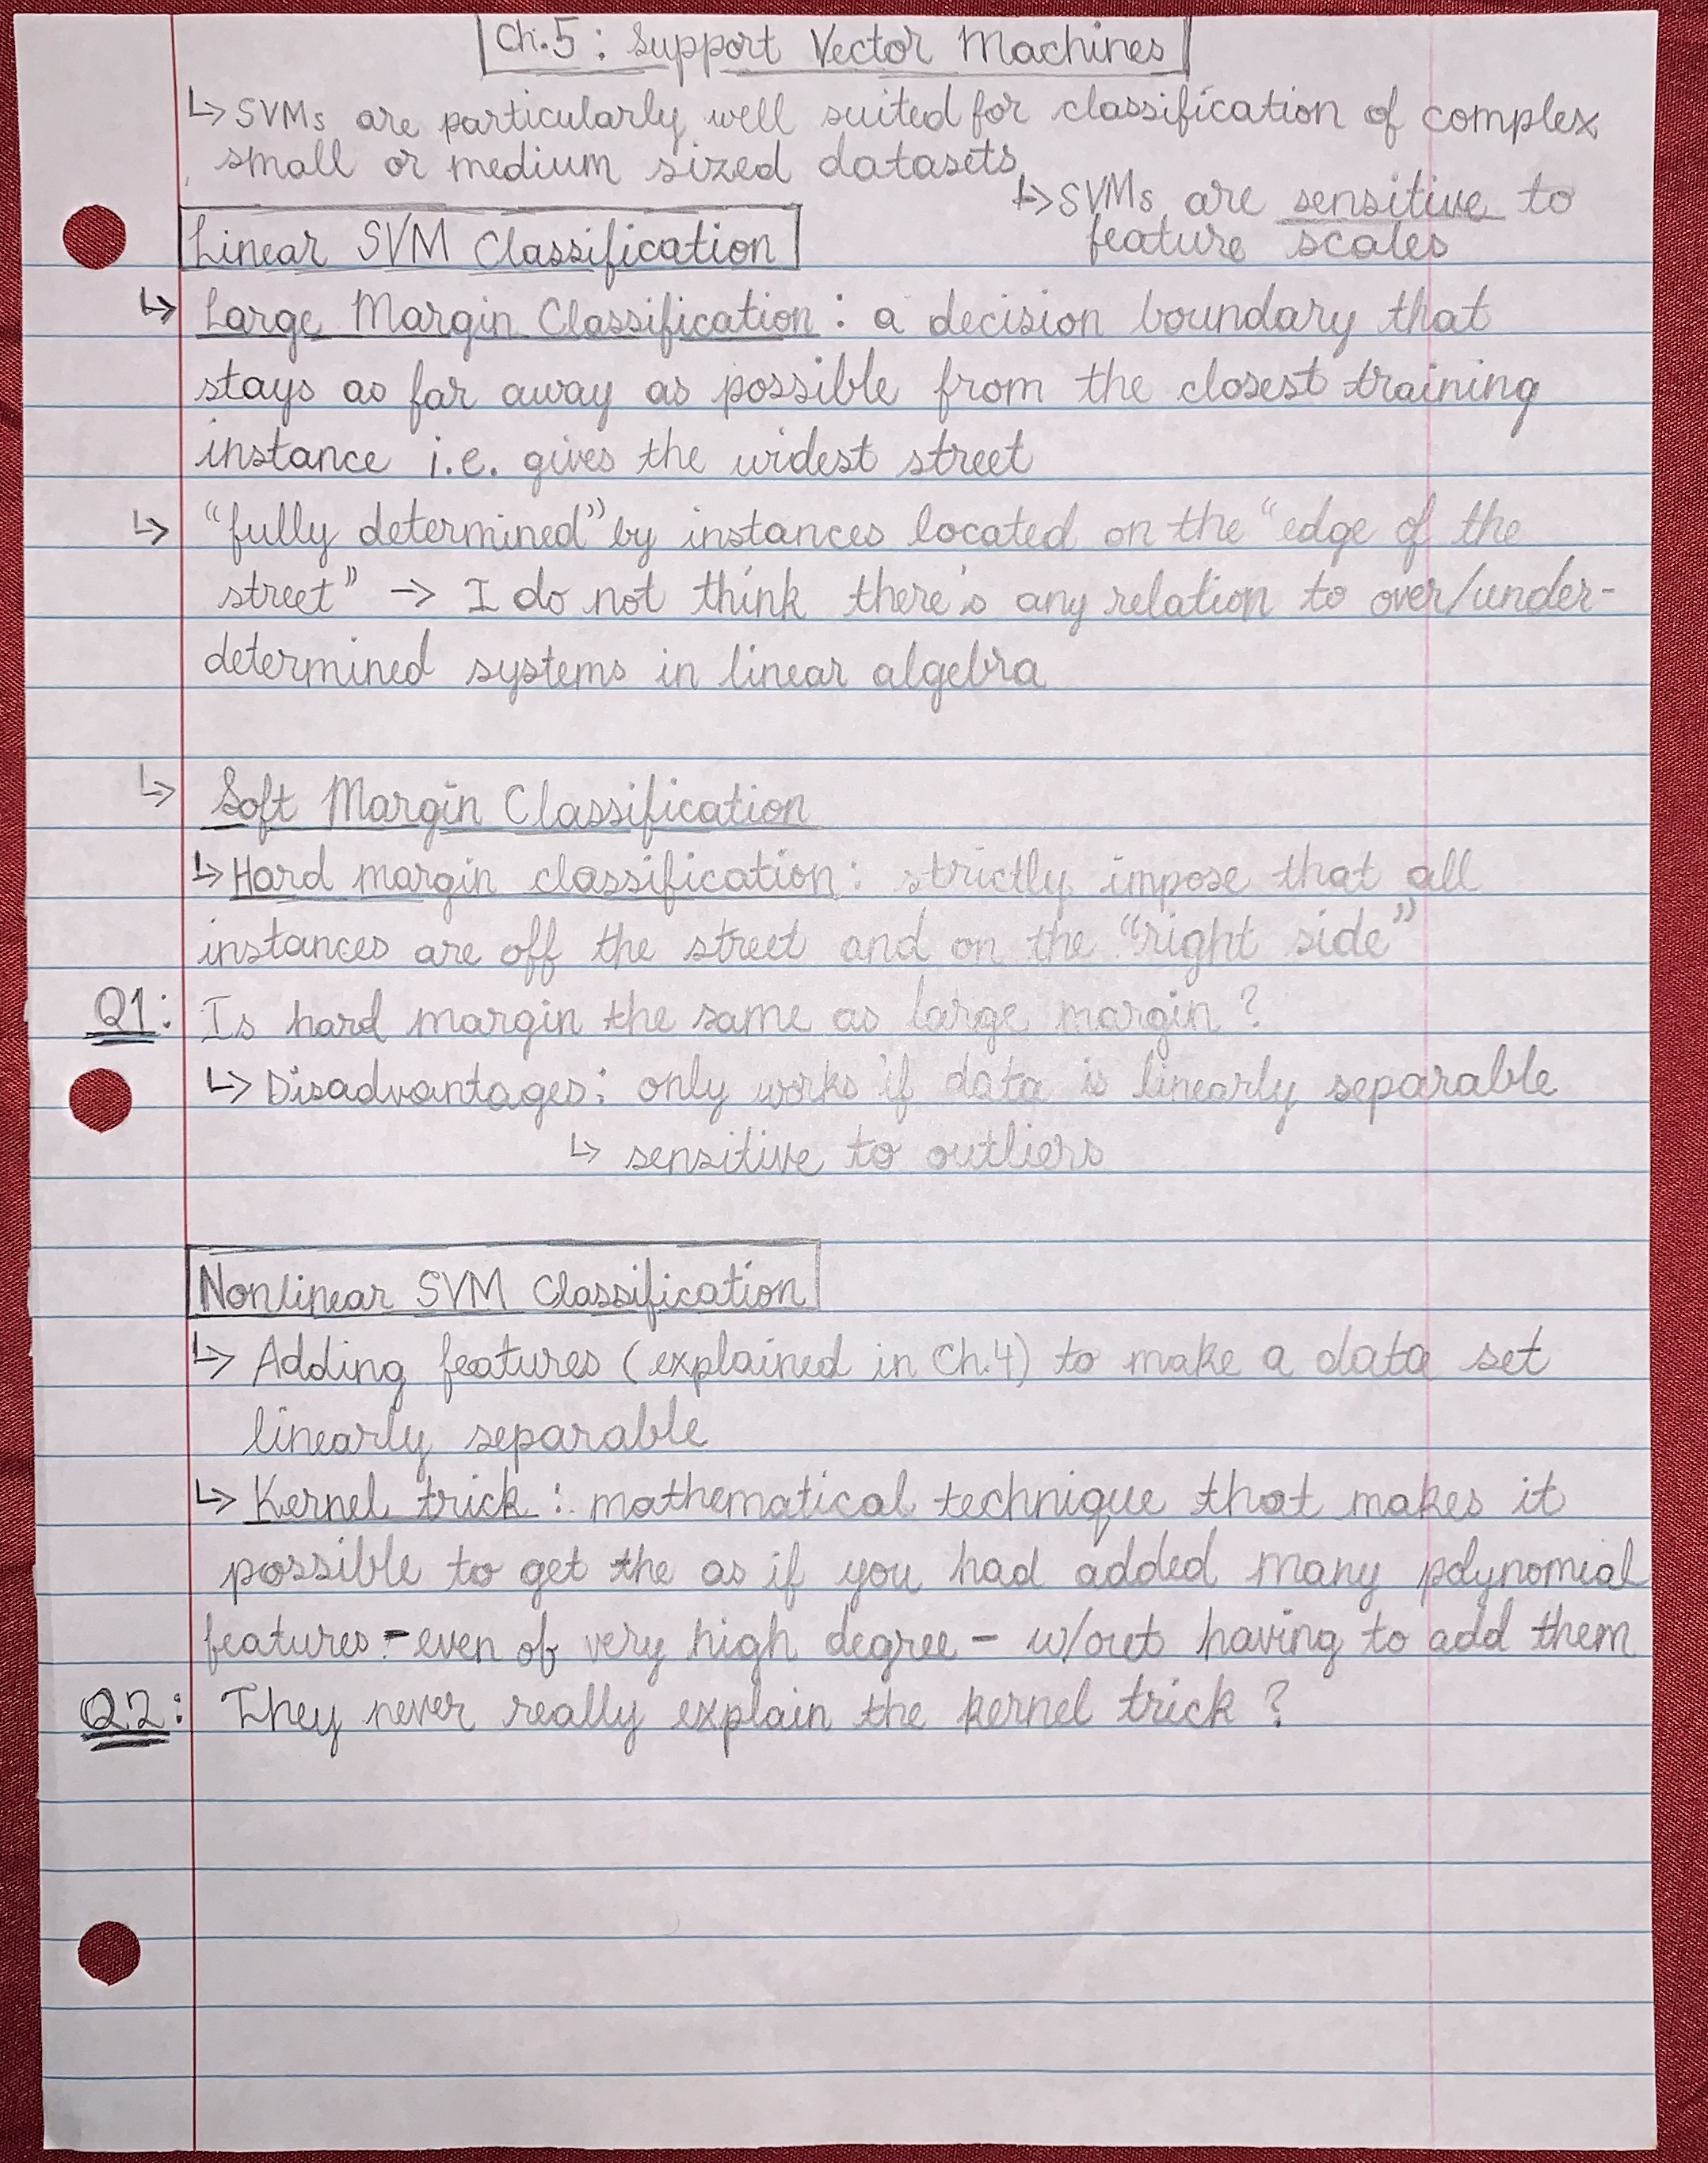 Ch.5: Support Vector Machines
↳ SVMs are particularly well suited for classification of complex
small or medium sized datasets
↳ SVMs are sensitive to
feature scales
Linear SVM Classification
↳ Large Margin Classification: a decision boundary that
stays as far away as possible from the closest training
instance i.e. gives the widest street
↳ "fully determined" by instances located on the "edge of the
street" → I do not think there's any relation to over/under-
determined systems in linear algebra
↳ Soft Margin Classification
↳ Hard margin classification: strictly impose that all
instances are off the street and on the "right side"
Q1: Is hard margin the same as large margin?
↳ Disadvantages: only works if data is linearly separable
↳ sensitive to outliers
Nonlinear SVM Classification
↳ Adding features (explained in Ch.4) to make a data set
linearly separable
↳ Kernel trick: mathematical technique that makes it
possible to get the as if you had added many polynomial
features - even of very high degree - w/out having to add them
Q2: They never really explain the kernel trick?